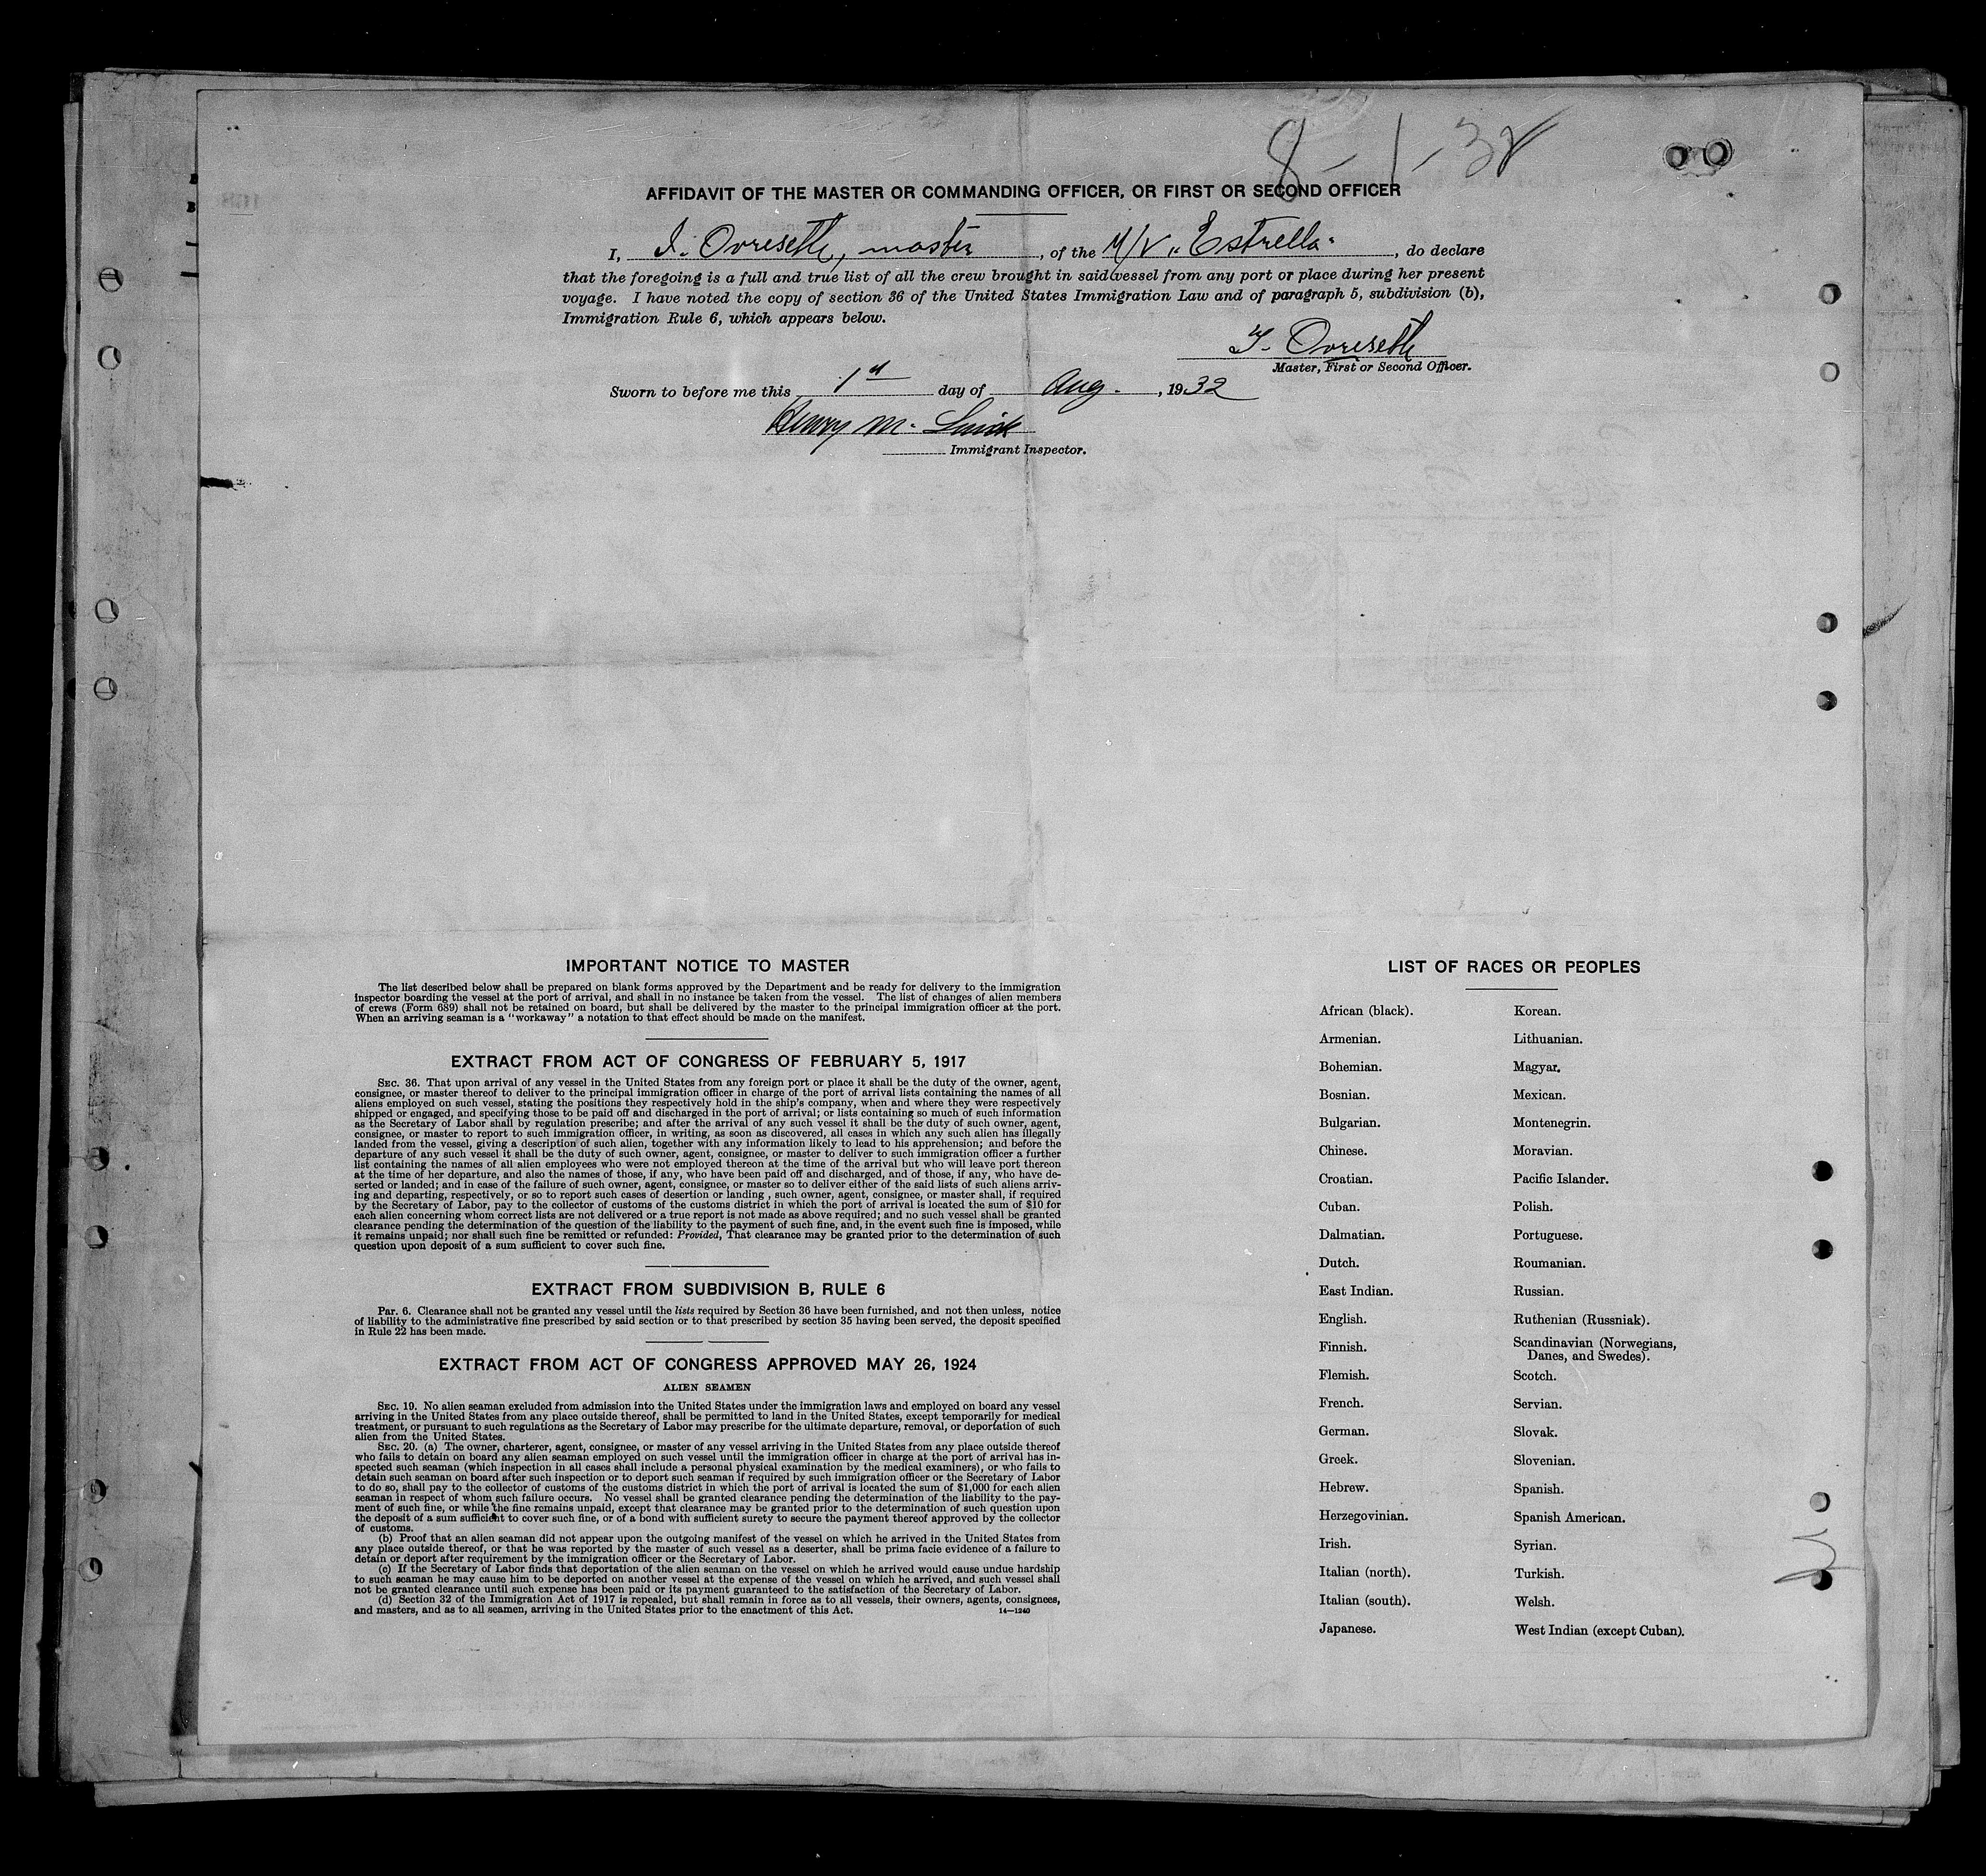 8-1-32
AFFIDAVIT OF THE MASTER OR COMMANDING OFFICER, OR FIRST OR SECOND OFFICER
I, I. Ovreseth, master, of the M/V "Estrella", do declare
that the foregoing is a full and true list of all the crew brought in said vessel from any port or place during her present
voyage. I have noted the copy of section 36 of the United States Immigration Law and of paragraph 5, subdivision (b),
Immigration Rule 6, which appears below.
Ovreseth
Master, First or Second Officer.
Sworn to before me this 1st day of Aug. , 1932
Henry M.
Immigrant Inspector.
IMPORTANT NOTICE TO MASTER
The list described below shall be prepared on blank forms approved by the Department and be ready for delivery to the immigration
inspector boarding the vessel at the port of arrival, and shall in no instance be taken from the vessel. The list of changes of alien members
of crews (Form 689) shall not be retained on board, but shall be delivered by the master to the principal immigration officer at the port.
When an arriving seaman is a "workaway" a notation to that effect should be made on the manifest.
EXTRACT FROM ACT OF CONGRESS OF FEBRUARY 5, 1917
SEC. 36. That upon arrival of any vessel in the United States from any foreign port or place it shall be the duty of the owner, agent,
consignee, or master thereof to deliver to the principal immigration officer in charge of the port of arrival lists containing the names of all
aliens employed on such vessel, stating the positions they respectively hold in the ship's company, when and where they were respectively
shipped or engaged, and specifying those to be paid off and discharged in the port of arrival; or lists containing so much of such information
as the Secretary of Labor shall by regulation prescribe; and after the arrival of any such vessel it shall be the duty of such owner, agent,
consignee, or master to report to such immigration officer, in writing, as soon as discovered, all cases in which any such alien has illegally
landed from the vessel, giving a description of such alien, together with any information likely to lead to his apprehension; and before the
departure of any such vessel it shall be the duty of such owner, agent, consignee, or master to deliver to such immigration officer a further
list containing the names of all alien employees who were not employed thereon at the time of the arrival but who will leave port thereon
at the time of her departure, and also the names of those, if any, who have been paid off and discharged, and of those, if any, who have de-
serted or landed; and in case of the failure of such owner, agent, consignee, or master so to deliver either of the said lists of such aliens arriv-
ing and departing, respectively, or so to report such cases of desertion or landing , such owner, agent, consignee, or master shall, if required
by the Secretary of Labor, pay to the collector of customs of the customs district in which the port of arrival is located the sum of $10 for
each alien concerning whom correct lists are not delivered or a true report is not made as above required; and no such vessel shall be granted
clearance pending the determination of the question of the liability to the payment of such fine, and, in the event such fine is imposed, while
it remains unpaid; nor shall such fine be remitted or refunded: Provided, That clearance may be granted prior to the determination of such
question upon deposit of a sum sufficient to cover such fine.
EXTRACT FROM SUBDIVISION B, RULE 6
Par. 6. Clearance shall not be granted any vessel until the lists required by Section 36 have been furnished, and not then unless, notice
of liability to the administrative fine prescribed by said section or to that prescribed by section 35 having been served, the deposit specified
in Rule 22 has been made.
EXTRACT FROM ACT OF CONGRESS APPROVED MAY 26, 1924
ALIEN SEAMEN
SEC. 19. No alien seaman excluded from admission into the United States under the immigration laws and employed on board any vessel
arriving in the United States from any place outside thereof, shall be permitted to land in the United States, except temporarily for medical
treatment, or pursuant to such regulations as the Secretary of Labor may prescribe for the ultimate departure, removal, or deportation of such
alien from the United States.
SEC. 20. (a) The owner, charterer, agent, consignee, or master of any vessel arriving in the United States from any place outside thereof
who fails to detain on board any alien seaman employed on such vessel until the immigration officer in charge at the port of arrival has in-
spected such seaman (which inspection in all cases shall include a personal physical examination by the medical examiners), or who fails to
detain such seaman on board after such inspection or to deport such seaman if required by such immigration officer or the Secretary of Labor
to do so, shall pay to the collector of customs of the customs district in which the port of arrival is located the sum of $1,000 for each alien
seaman in respect of whom such failure occurs. No vessel shall be granted clearance pending the determination of the liability to the pay-
ment of such fine, or while the fine remains unpaid, except that clearance may be granted prior to the determination of such question upon
the deposit of a sum sufficient to cover such fine, or of a bond with sufficient surety to secure the payment thereof approved by the collector
of customs.
(b) Proof that an alien seaman did not appear upon the outgoing manifest of the vessel on which he arrived in the United States from
any place outside thereof, or that he was reported by the master of such vessel as a deserter, shall be prima facie evidence of a failure to
detain or deport after requirement by the immigration officer or the Secretary of Labor.
(c) If the Secretary of Labor finds that deportation of the alien seaman on the vessel on which he arrived would cause undue hardship
to such seaman he may cause him to be deported on another vessel at the expense of the vessel on which he arrived, and such vessel shall
not be granted clearance until such expense has been paid or its payment guaranteed to the satisfaction of the Secretary of Labor.
(d) Section 32 of the Immigration Act of 1917 is repealed, but shall remain in force as to all vessels, their owners, agents, consignees,
and masters, and as to all seamen, arriving in the United States prior to the enactment of this Act.
14—1240
LIST OF RACES OR PEOPLES
African (black).
Armenian.
Bohemian.
Bosnian.
Bulgarian.
Chinese.
Croatian.
Cuban.
Dalmatian.
Dutch.
East Indian.
English.
Finnish.
Flemish.
French.
German.
Greek.
Hebrew.
Herzegovinian.
Irish.
Italian (north).
Italian (south).
Japanese.
Korean.
Lithuanian.
Magyar.
Mexican.
Montenegrin.
Moravian.
Pacific Islander.
Polish.
Portuguese.
Roumanian.
Russian.
Ruthenian (Russniak).
Scandinavian (Norwegians,
Danes, and Swedes).
Scotch.
Servian.
Slovak.
Slovenian.
Spanish.
Spanish American.
Syrian.
Turkish.
Welsh.
West Indian (except Cuban).